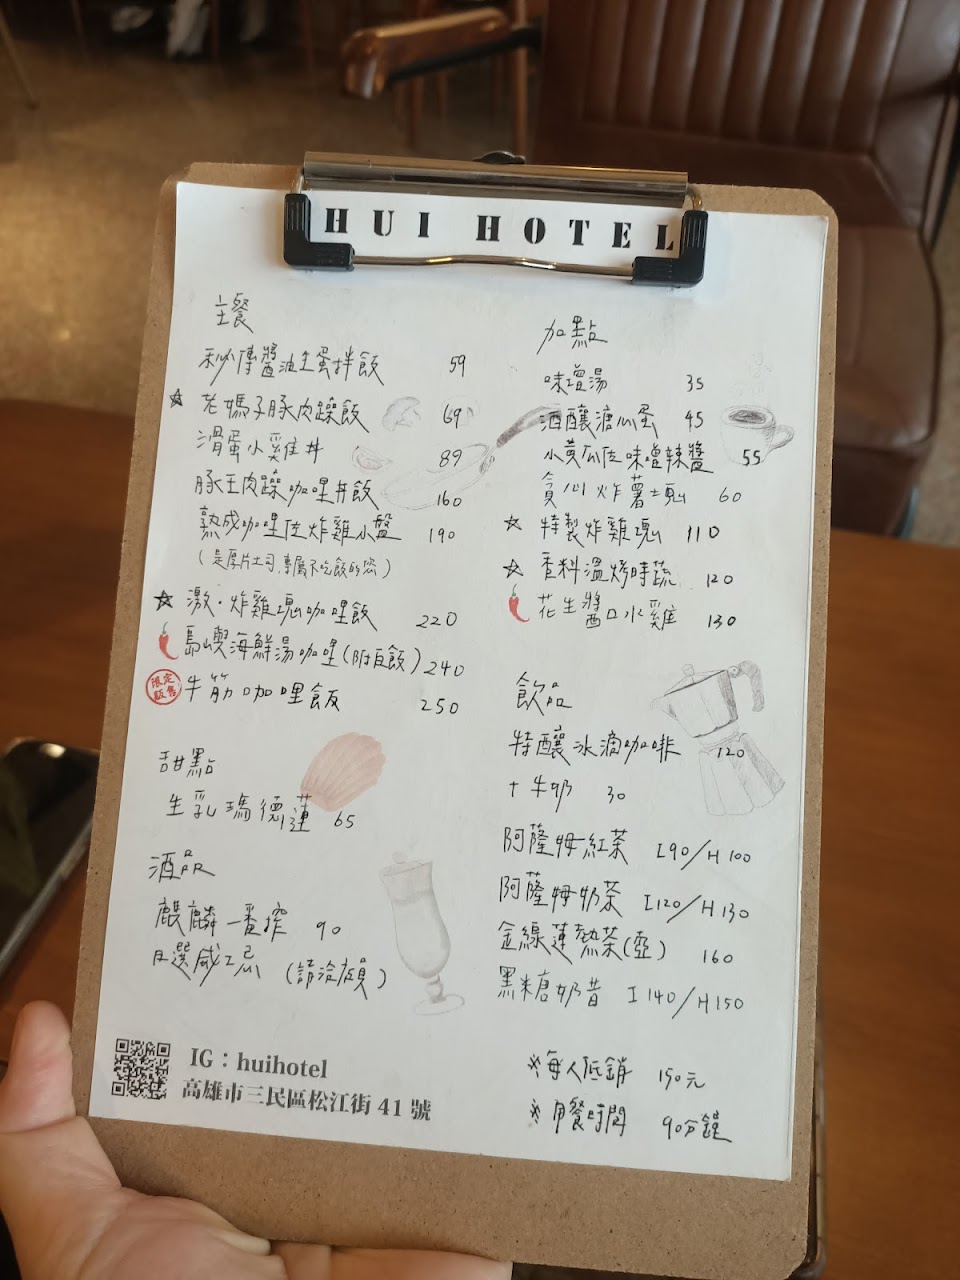 HUI HOTEL
主餐
秘傳醬油生蛋拌飯 59
老媽子豚肉躁飯 69
滑蛋小雞丼 89
豚王肉躁咖哩丼飯 160
熟成咖哩佐炸雞小盤 190
(是厚片土司,專屬不吃飯的您)
激·炸雞塊咖哩飯 220
島嶼海鮮湯咖哩(附白飯) 240
限定販售 牛筋咖哩飯 250
甜點
生乳瑪德蓮 65
酒品
麒麟一番搾 90
自選威士忌 (請洽店員)
IG：huihotel
高雄市三民區松江街 41 號
加點
味噌湯 35
酒釀溏心蛋 45
小黃瓜佐味噌辣醬 55
貪心炸薯塊 60
特製炸雞塊 110
香料溫烤時蔬 120
花生醬口水雞 130
飲品
特釀冰滴咖啡 120
+牛奶 30
阿薩姆紅茶 I90/H100
阿薩姆奶茶 I120/H130
金線蓮熱茶(壺) 160
黑糖奶昔 I140/H150
※每人低銷 150元
※用餐時間 90分鐘